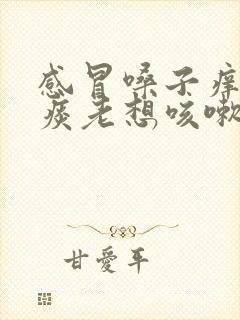 感冒嗓子痒
痰老想咳嗽
甘爱平